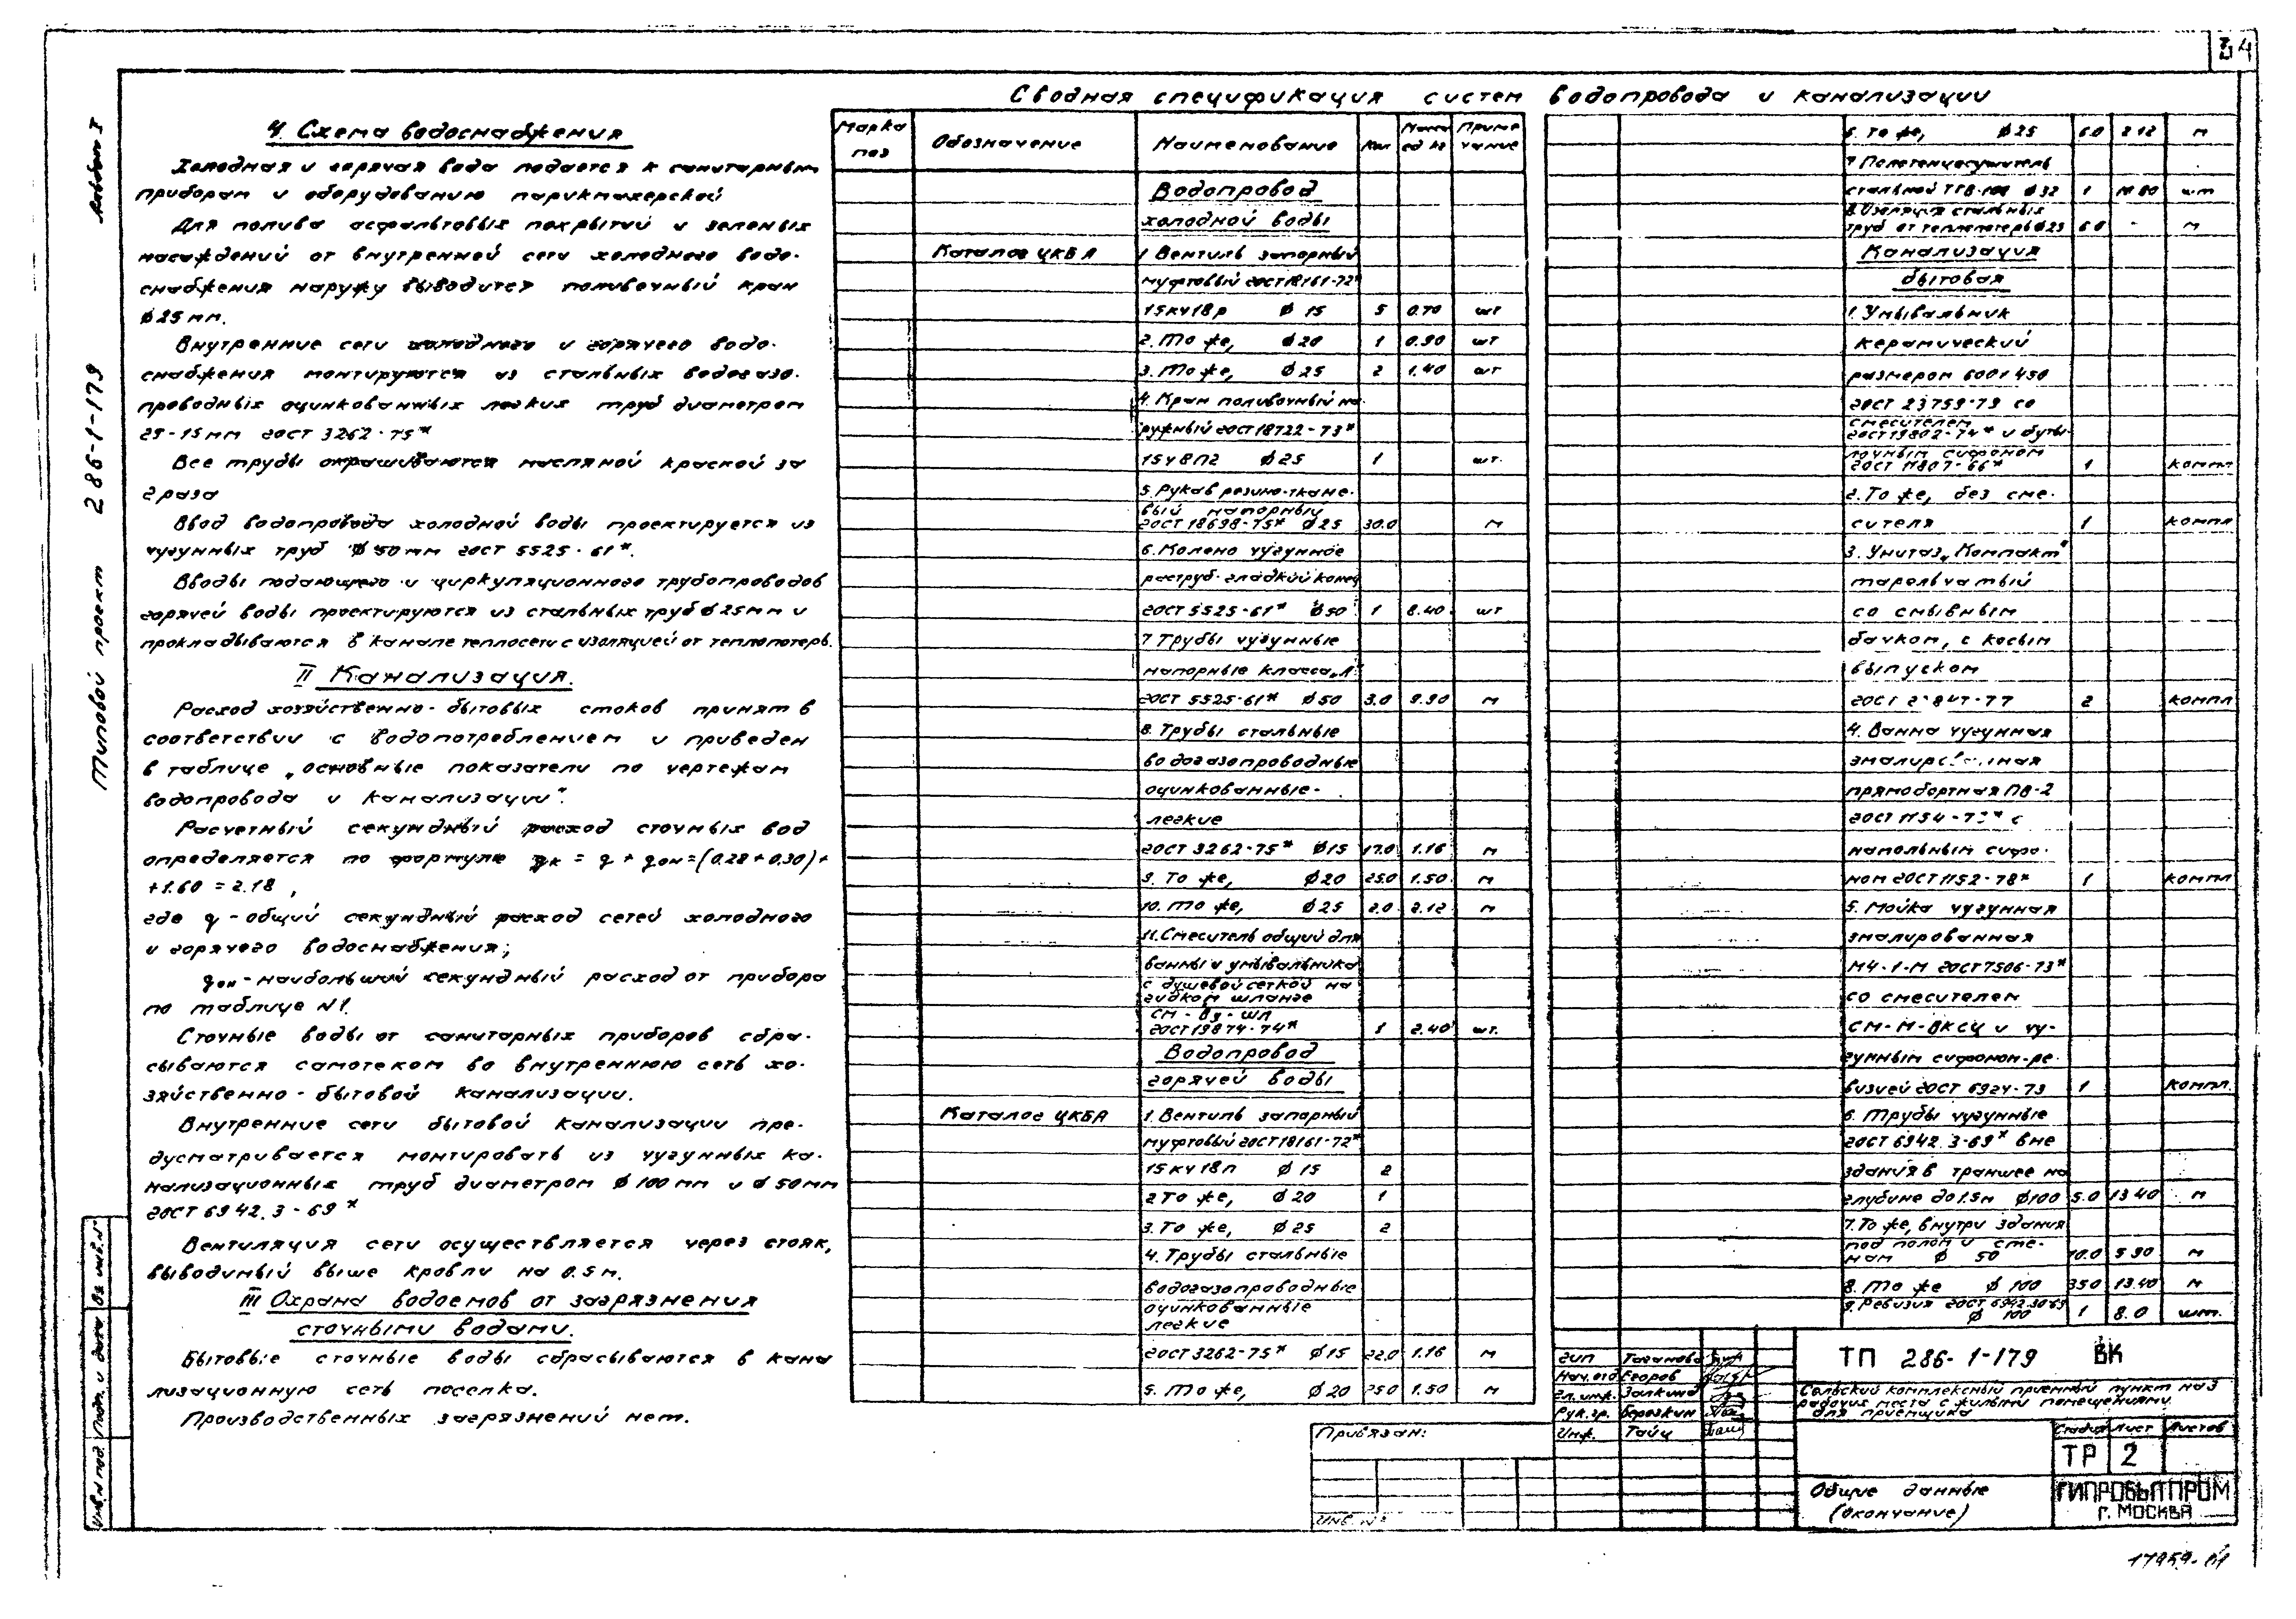 34
Альбом I
Типовой проект 286-1-179
4. Схема водоснабжения
Холодная и горячая вода подается к санитарным
приборам и оборудованию парикмахерской
Для полива асфальтовых покрытий и зеленых
насаждений от внутренней сети холодного водо-
снабжения наружу выводится поливочный кран
Ф 25 мм.
Внутренние сети холодного и горячего водо-
снабжения монтируются из стальных водогазо-
проводных оцинкованных легких труб диаметром
25-15 мм ГОСТ 3262-75*
Все трубы окрашиваются масляной краской за
2 раза
Ввод водопровода холодной воды проектируется из
чугунных труб Ф 50 мм ГОСТ 5525-61*.
Вводы подающего и циркуляционного трубопроводов
горячей воды проектируются из стальных труб Ф 25мм и
прокладываются в канале теплосети с изоляцией от теплопотерь.
II Канализация.
Расход хозяйственно-бытовых стоков принят в
соответствии с водопотреблением и приведен
в таблице „основные показатели по чертежам
водопровода и канализации".
Расчетный секундный расход сточных вод
определяется по формуле qк = q + qон = (0.28 + 0.30) +
+ 1.60 = 2.18 ,
где q - общий секундный расход сетей холодного
и горячего водоснабжения;
qон - наибольший секундный расход от прибора
по таблице N1.
Сточные воды от санитарных приборов сбра-
сываются самотеком во внутреннюю сеть хо-
зяйственно-бытовой канализации.
Внутренние сети бытовой канализации пре-
дусматривается монтировать из чугунных ка-
нализационных труб диаметром Ф 100 мм и Ф 50мм
ГОСТ 6942.3-69*
Вентиляция сети осуществляется через стояк,
выводимый выше кровли на 0.5 м.
III Охрана водоемов от загрязнения
сточными водами.
Бытовые сточные воды сбрасываются в кана
лизационную сеть поселка.
Производственных загрязнений нет.
Сводная спецификация систем водопровода и канализации
Марка поз Обозначение Наименование Кол Масса ед кг Приме чание
Водопровод
холодной воды
Каталог ЦКБА 1 Вентиль запорный
муфтовый ГОСТ 18161-72*
15кч18р Ф 15 5 0.70 шт
2. То же, Ф 20 1 0.90 шт
3. То же, Ф 25 2 1.40 шт
4. Кран поливочный на
ружный ГОСТ 18722-73*
15ч8п2 Ф 25 1 шт.
5. Рукав резино-ткане-
вый напорный
ГОСТ 18698-75* Ф 25 30.0 м
6. Колено чугунное
раструб-гладкий конец
ГОСТ 5525-61* Ф 50 1 8.40 шт
7 Трубы чугунные
напорные класса „А"
ГОСТ 5525-61* Ф 50 3.0 9.90 м
8. Трубы стальные
водогазопроводные
оцинкованные-
легкие
ГОСТ 3262-75* Ф 15 17.0 1.16 м
9. То же, Ф 20 25.0 1.50 м
10. То же, Ф 25 2.0 2.12 м
11. Смеситель общий для
ванны и умывальника
с душевой сеткой на
гибком шланге
СМ-ВУ-ШЛ
ГОСТ 19874-74* 1 2.40 шт.
Водопровод
горячей воды
Каталог ЦКБА 1. Вентиль запорный
муфтовый ГОСТ 18161-72*
15кч18п Ф 15 2
2 То же, Ф 20 1
3. То же, Ф 25 2
4. Трубы стальные
водогазопроводные
оцинкованные
легкие
ГОСТ 3262-75* Ф 15 22.0 1.16 м
5. То же, Ф 20 25.0 1.50 м
6. То же, Ф 25 6.0 2.12 м
7 Полотенцесушитель
стальной Ф 32 1 шт
8. Изоляция стальных
труб от теплопотерь Ф 25 6.0 - м
Канализация
бытовая
1. Умывальник
керамический
размером 600х450
ГОСТ 23759-79 со
смесителем
ГОСТ 19802-74* и буты-
лочным сифоном
1 компл
2. То же, без сме-
сителя 1 компл
3. Унитаз „Компакт"
тарельчатый
со смывным
бачком, с косым
выпуском
2 компл
4. Ванна чугунная
эмалированная
прямобортная ПВ-2
ГОСТ 1154-73* с
напольным сифо-
ном ГОСТ 1152-78* 1 компл
5. Мойка чугунная
эмалированная
МЧ-1-М ГОСТ 7506-73*
со смесителем
СМ-М-ВКСЦ и чу-
гунным сифоном-ре-
визией ГОСТ 6924-73 1 компл.
6. Трубы чугунные
ГОСТ 6942.3-69* вне
здания в траншее на
глубине до 1.5м Ф100 5.0 13.40 м
7. То же, внутри здания
под полом и сте-
нам Ф 50 10.0 5.90 м
8. То же Ф 100 35.0 13.40 м
9. Ревизия ГОСТ
Ф 100 1 8.0 шт.
ТП 286-1-179 ВК
ГИП Таганова
Нач. отд Егоров
Гл. инж. Залкинд
Рук. гр. Березкин
Инж. Тайц
Сельский комплексный приемный пункт на 3
рабочих места с жилыми помещениями
для приемщика
Стадия Лист Листов
ТР 2
Общие данные
(окончание)
ГИПРОБЫТПРОМ
г. МОСКВА
Привязан:
Инв. N°
Инв. N под. Подп. и дата Вз. инв. N